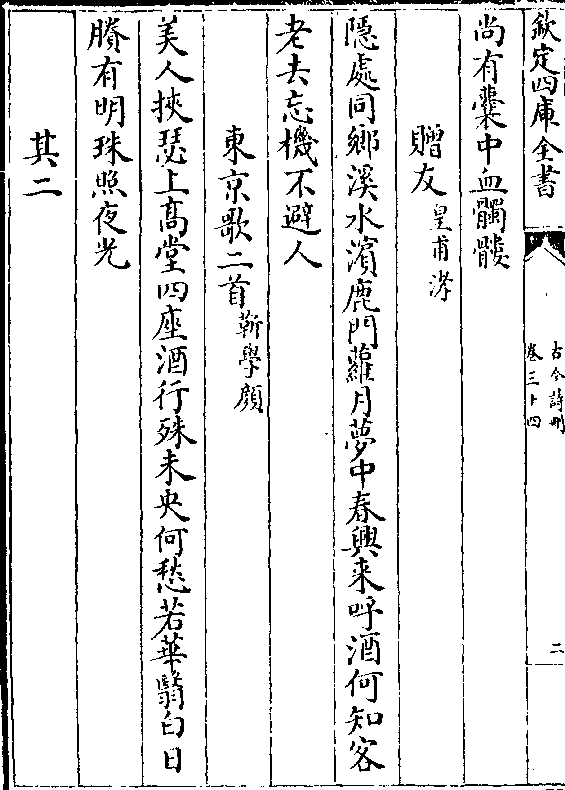 欽定四庫全書
古今詩刪
卷三十四
二
尚有囊中血髑髏
贈友 皇甫涍
隱處同鄉溪水濱鹿門蘿月夢中春興来呼酒何知客
老去忘機不避人
東京歌二首 靳學顔
美人挾瑟上髙堂四座酒行殊未央何愁若華翳白日
賸有明珠照夜光
其二